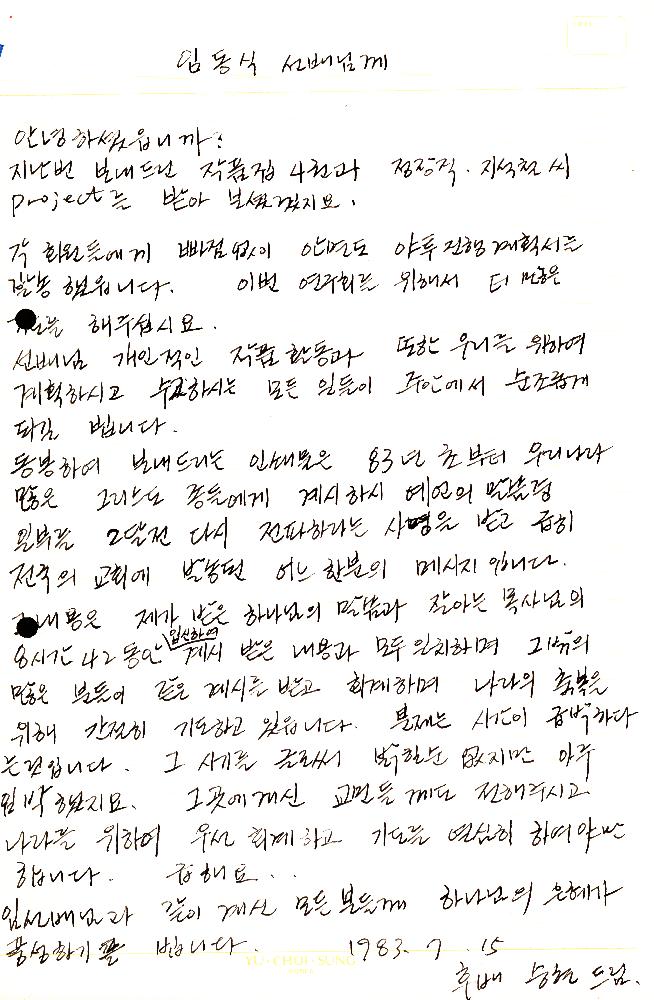 임동식 선배님께
안녕하셨읍니까?
지난번 보내드린 작품집 4권과 정장직. 지석철 씨
project는 받아 보셨겠지요.
각 회원들에게 빠짐없이 안면도 야투진행계획서를
발송했읍니다. 이번 연구회를 위해서 더 많은
해주십시요.
선배님 개인적인 작품활동과 또한 우리를 위하여
계획하시고 수고하시는 모든 일들이 주안에서 순조롭게
되길 빕니다.
동봉하여 보내드리는 인쇄물은 83년 초부터 우리나라
많은 그리스도 종들에게 계시하신 예언의 말씀중
일부를 2달전 다시 전파하라는 사명을 받고 급히
전국의 교회에 발송된 어느 한분의 메시지입니다.
내용은 제가 받은 하나님의 말씀과 잘아는 목사님의
8시간 42동안 입신하여 계시 받은 내용과 모두 일치하며 그밖의
많은 분들이 같은 계시를 받고 회개하며 나라의 축복을
위해 간절히 기도하고 있읍니다. 문제는 시간이 급박하다
는것입니다. 그 시기를 글로써 밝힐순 없지만 아주
임박했지요. 그곳에계신 교민들께도 전해주시고
나라를 위하여 우선 회개하고 기도를 열심히 하여야만
합니다. 급해요..
임선배님과 같이 계신 모든분들께 하나님의 은혜가
풍성하기를 빕니다. 1983. 7. 15
YU·CHUI·SUNG
후배 승현 드림.